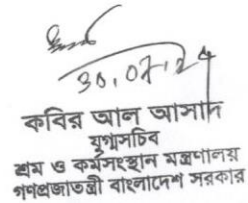 ৩০.০৭.২৪
কবির আল আসাদ
যুগ্মসচিব
শ্রম ও কর্মসংস্থান মন্ত্রণালয়
গণপ্রজাতন্ত্রী বাংলাদেশ সরকার